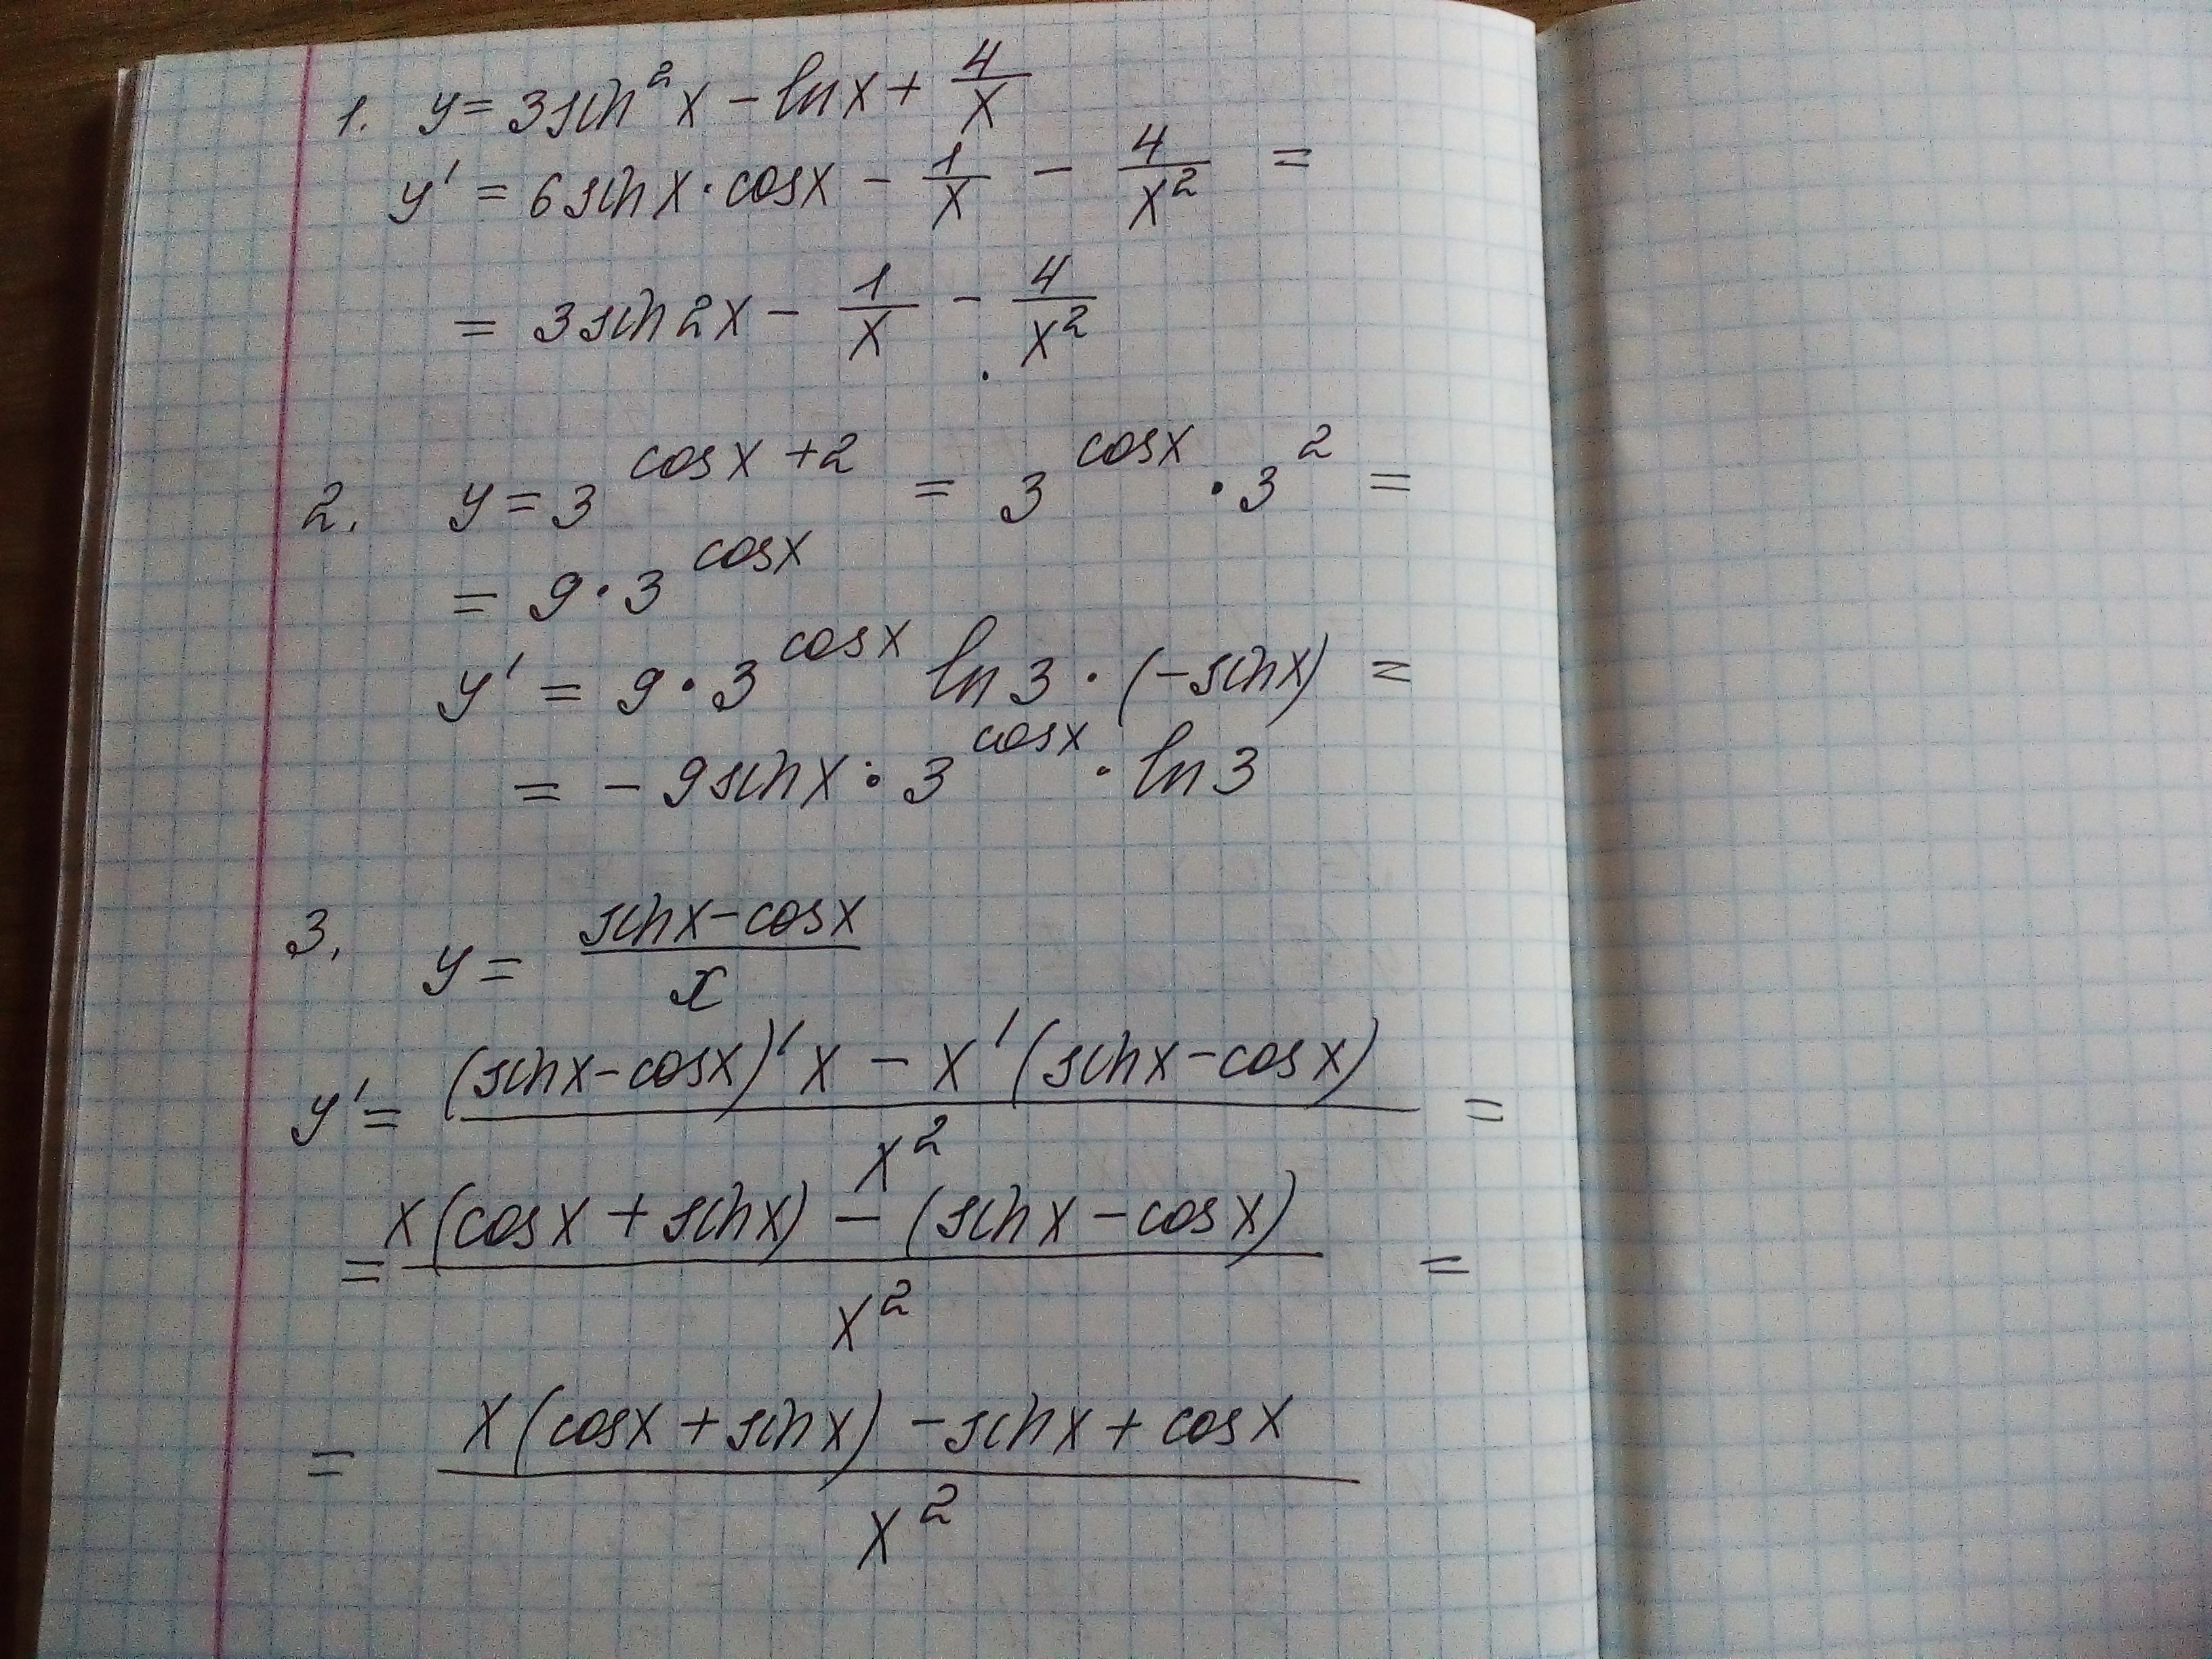 1. y = 3sin²x − lnx + 4/x
y' = 6sinx·cosx − 1/x − 4/x² =
= 3sin2x − 1/x − 4/x²
2. y = 3^(cosx+2) = 3^(cosx) · 3² =
= 9·3^(cosx)
y' = 9·3^(cosx) ln3·(−sinx) =
= −9sinx·3^(cosx)·ln3
3. y = (sinx−cosx)/x
y' = ((sinx−cosx)'x − x'(sinx−cosx))/x² =
= (x(cosx+sinx) − (sinx−cosx))/x² =
= (x(cosx+sinx) − sinx + cosx)/x²